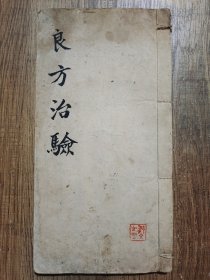 良方治驗